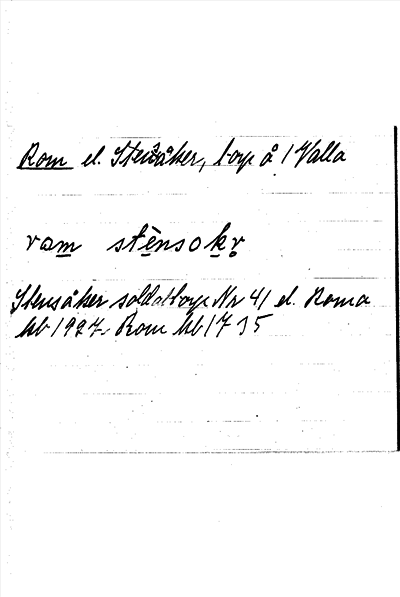 Rom el. Stensåker, torp å 1 Valla
ram stènsokr
Stensåker soldattorp Nr 41 el. Roma
hb 1927 Rom hb 1735